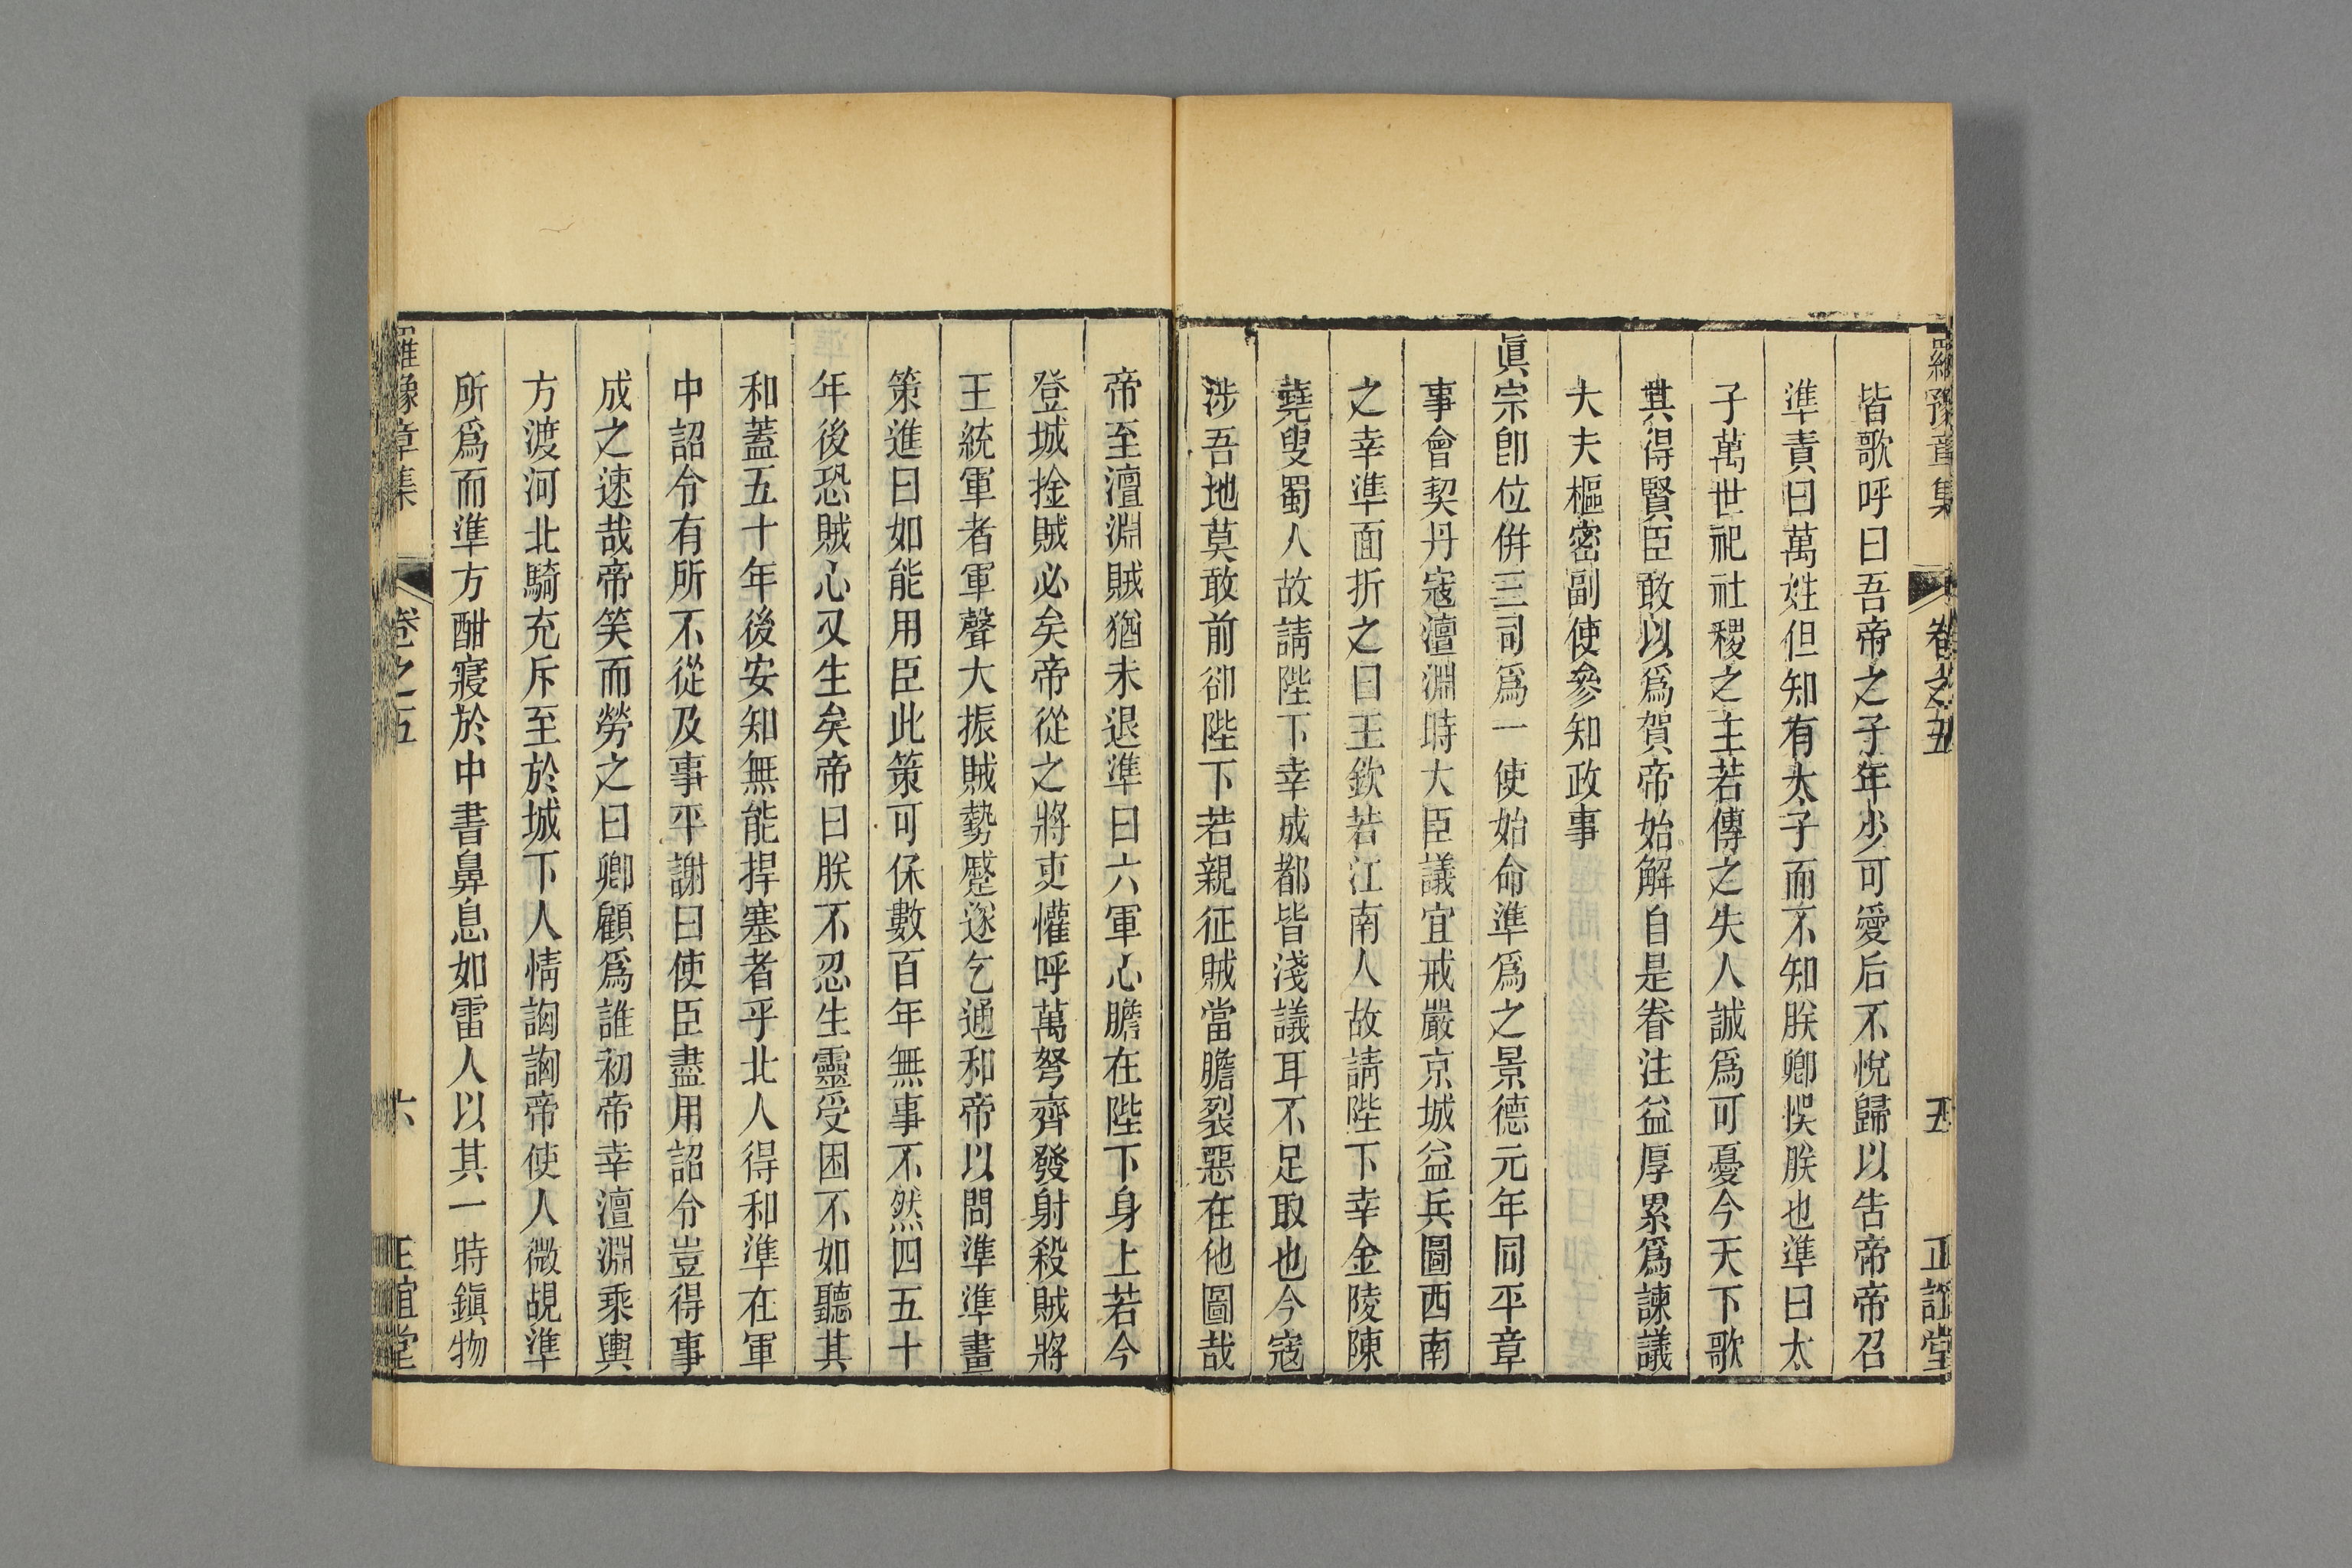 羅豫章集 卷之五 五 正誼堂
皆歌呼曰吾帝之子年少可愛后不悅歸以告帝帝召
準責曰萬姓但知有太子而不知朕卿悞朕也準曰太
子萬世祀社稷之主若傳之失人誠爲可憂今天下歌
其得賢臣敢以爲賀帝始解自是眷注益厚累爲諫議
大夫樞密副使參知政事
眞宗卽位併三司爲一使始命準爲之景德元年同平章
事會契丹寇澶淵時大臣議宜戒嚴京城益兵圖西南
之幸準面折之曰王欽若江南人故請陛下幸金陵陳
蕘叟蜀人故請陛下幸成都皆淺議耳不足取也今寇
涉吾地莫敢前卻陛下若親征賊當膽裂惡在他圖哉
帝至澶淵賊猶未退準曰六軍心膽在陛下身上若今
登城捦賊必矣帝從之將吏懽呼萬弩齊發射殺賊將
王統軍者軍聲大振賊勢蹙遂乞通和帝以問準準畫
策進曰如能用臣此策可保數百年無事不然四五十
年後恐賊心又生矣帝曰朕不忍生靈受困不如聽其
和蓋五十年後安知無能捍塞者乎北人得和準在軍
中詔令有所不從及事平謝曰使臣盡用詔令豈得事
成之速哉帝笑而勞之曰卿顧爲誰初帝幸澶淵乘輿
方渡河北騎充斥至於城下人情詾詾帝使人微覘準
所爲而準方酣寢於中書鼻息如雷人以其一時鎭物
羅豫章集 卷之五 六 正誼堂